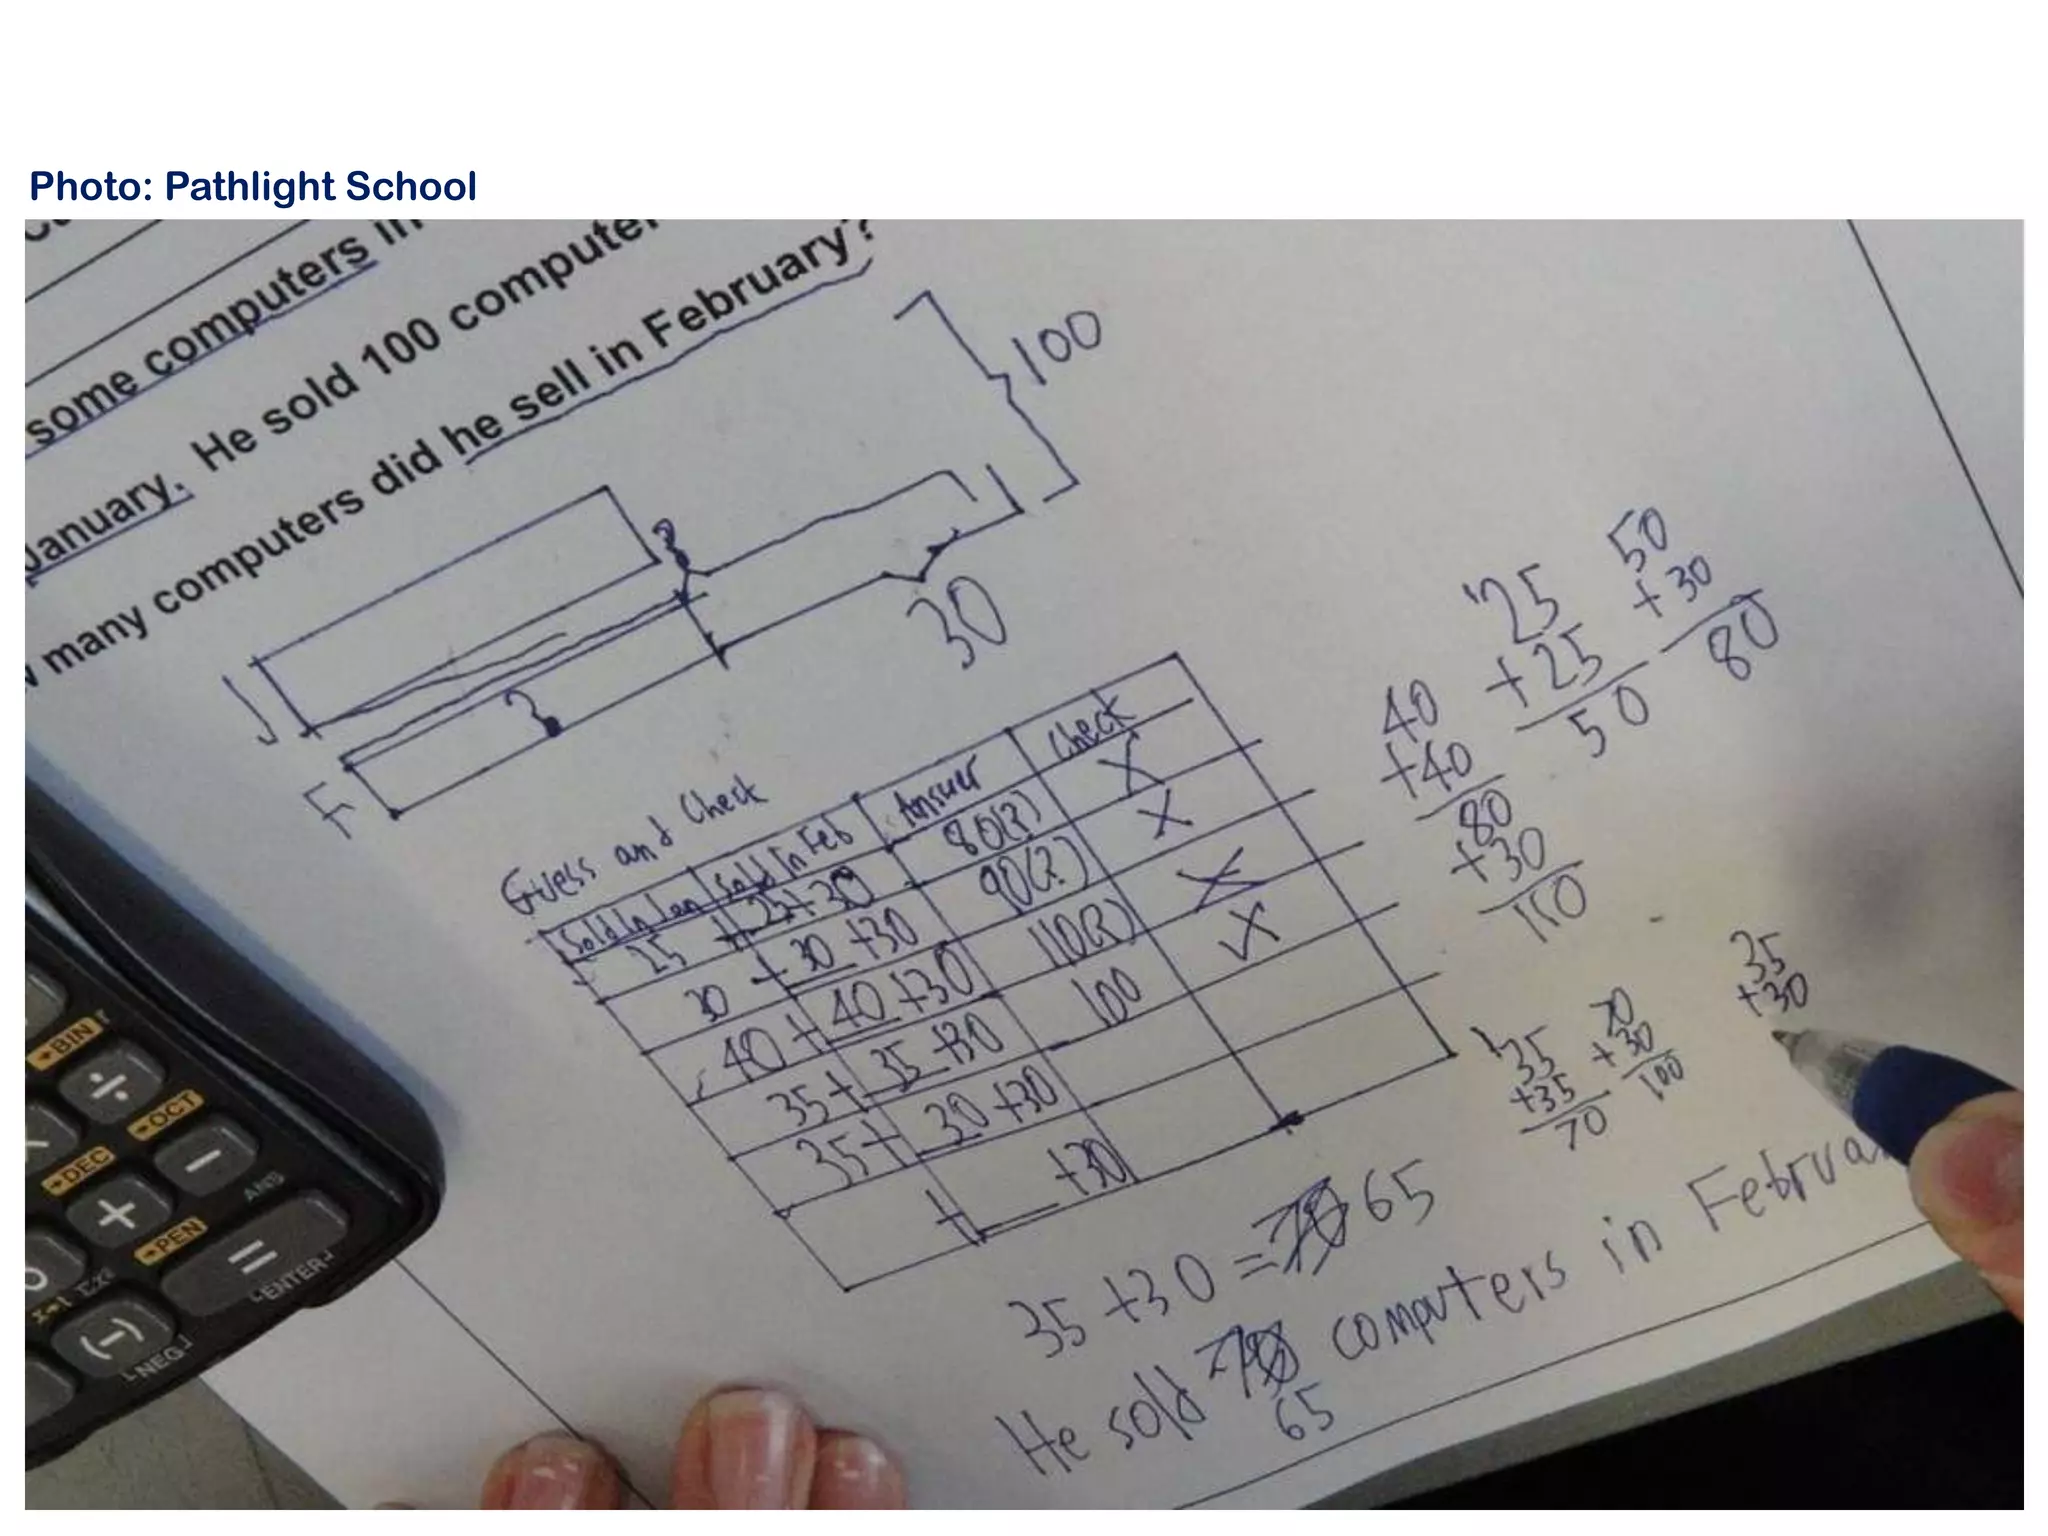 Photo: Pathlight School
some computers in
January. He sold 100 computer
many computers did he sell in February?
100
J
?
30
F
Guess and Check
Sold In Jan Sold In Feb Answer Check
25 + 25+30 80(?) X
30 + 30 +30 90(?) X
40+ 40+30 110(?) X
35+ 35+30 100
35+ 30+30
+ +30
25
+25
50
50
+30
80
40
+40
80
+30
110
35
+35
70
70
+30
100
35
+30
35+30= 65
He sold computers in Februa
65
÷
+
-
=
(-)
BIN
OCT
DEC
PEN
ANS
ENTER
NEG